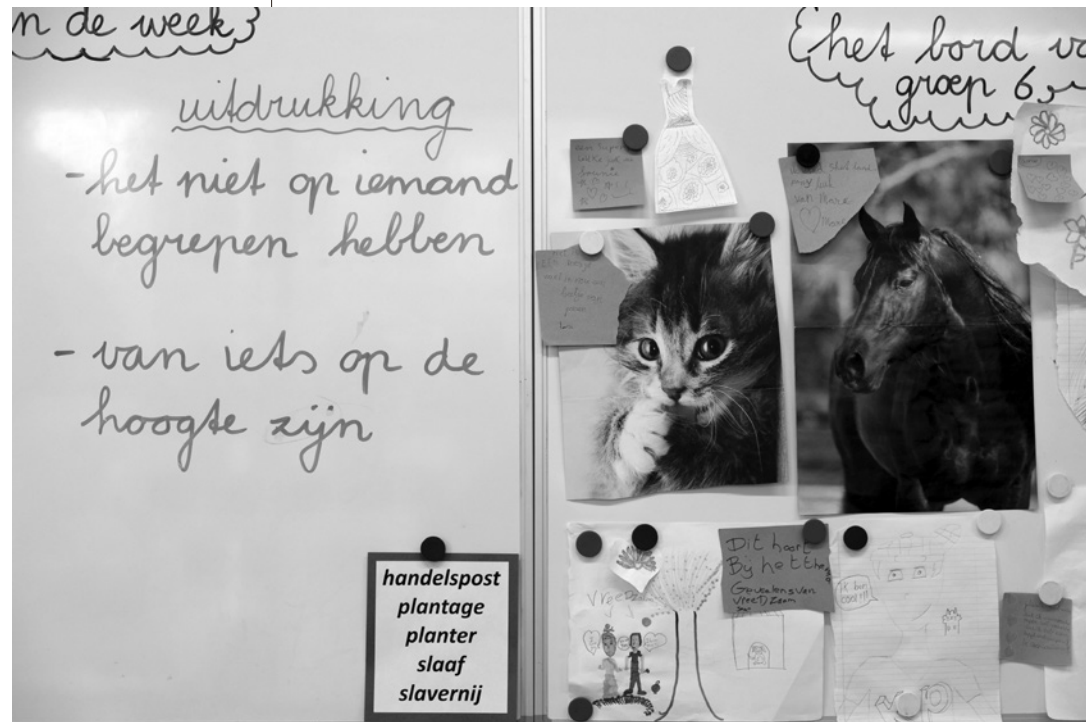 n de week
uitdrukking
- het niet op iemand
begrepen hebben
- van iets op de
hoogte zijn
handelspost
plantage
planter
slaaf
slavernij
het bord va
groep 6
van
Dit hoort
Bij het the
vreedzaam
ik ben
cool!!!